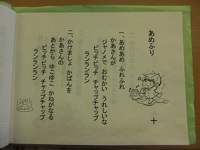 あめふり
一、あめあめ ふれふれ
かあさんが
ジャノメで おむかい うれしいな
ピッチピッチ チャップチャップ
ランランラン
二、かけましょ かばんを
かあさんの
あとから ゆこゆこ かねがなる
ピッチピッチ チャップチャップ
ランランラン
十